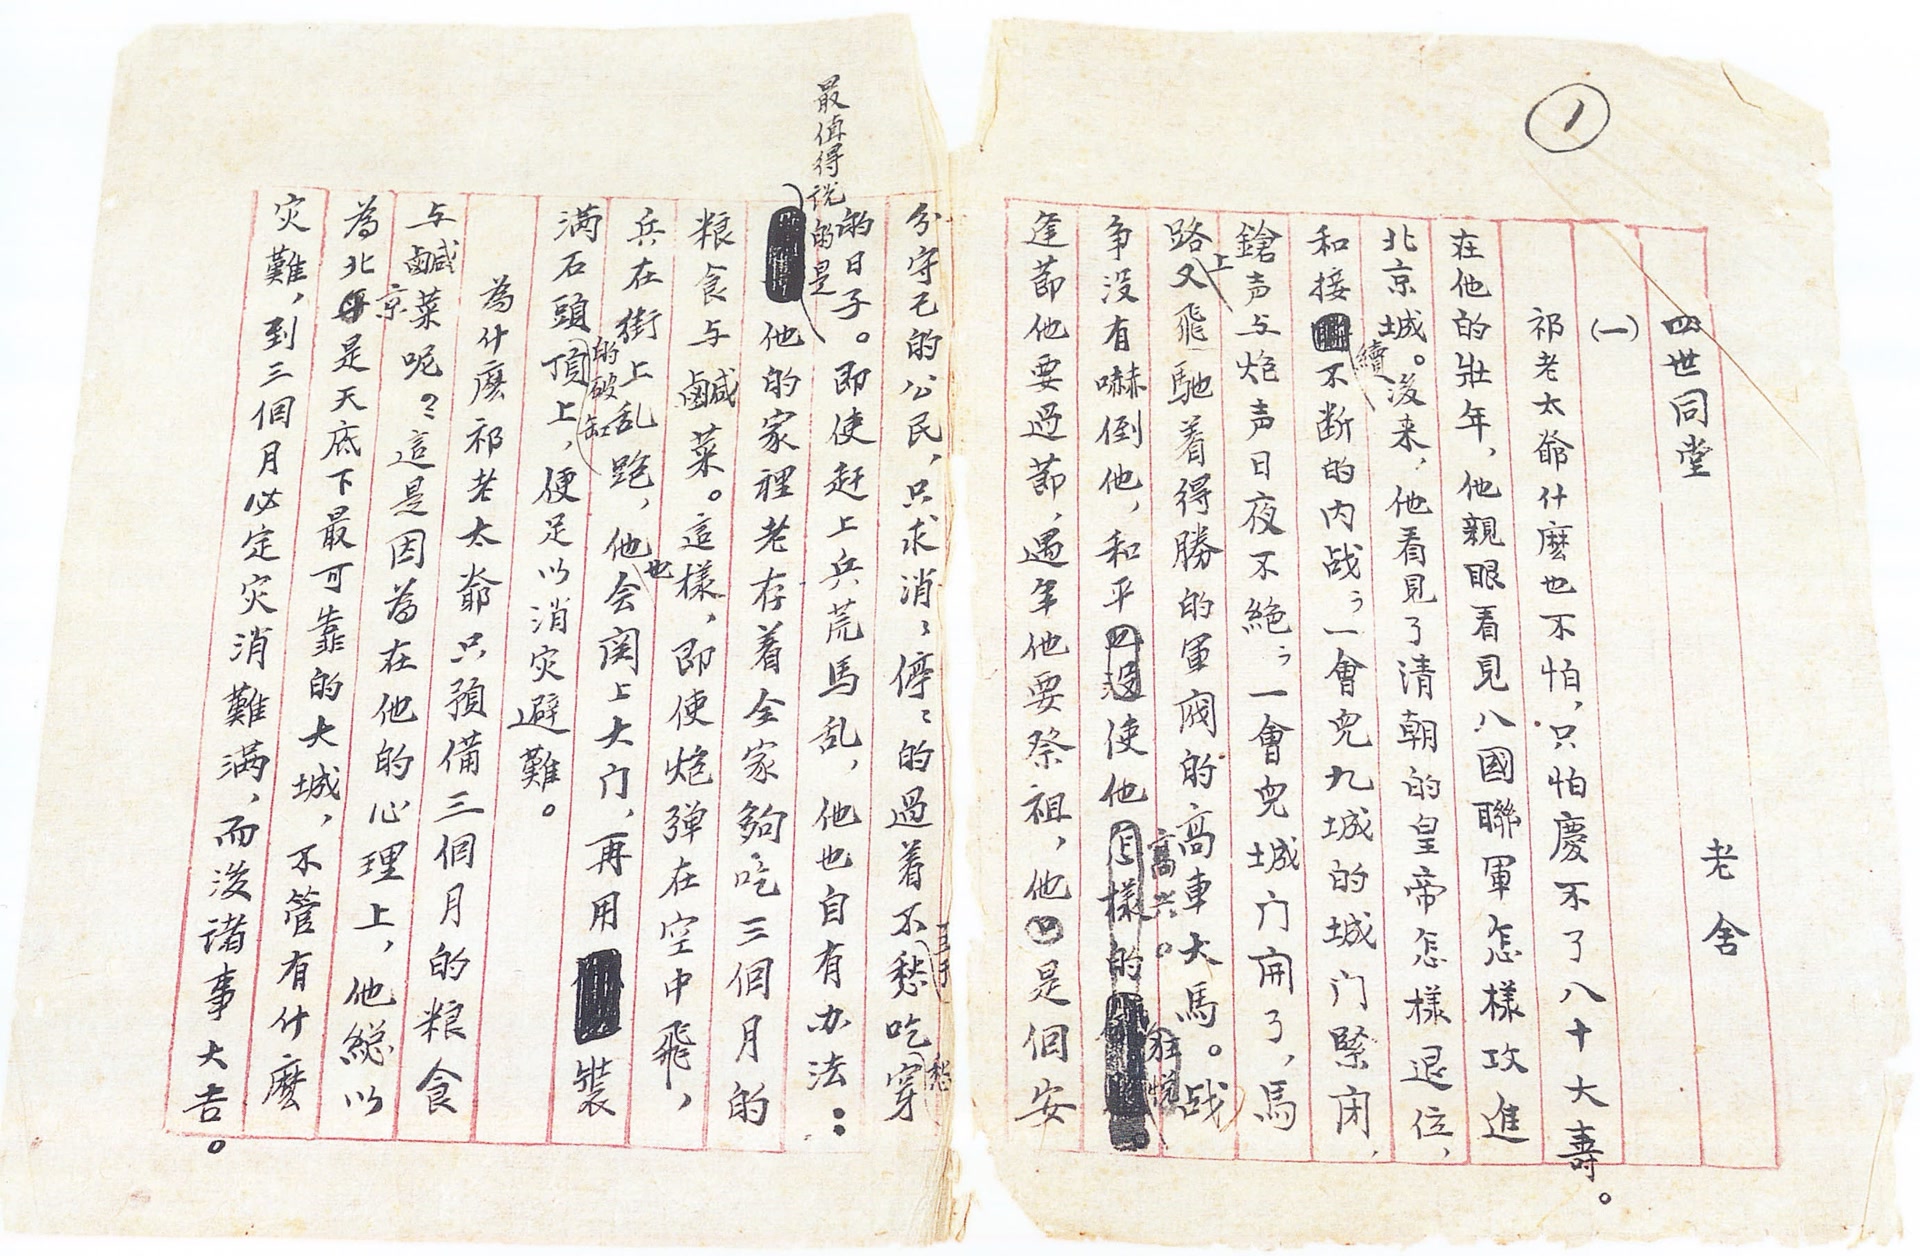 1
四世同堂
老舍
(一)
祁老太爺什麽也不怕,只怕慶不了八十大壽。
在他的壯年,他親眼看見八國聯軍怎樣攻進
北京城。後来,他看見了清朝的皇帝怎樣退位,
和接續不断的内战;一會兒九城的城门緊闭,
鎗声与炮声日夜不絶;一會兒城门开了,馬
路上又飛馳着得勝的軍阀的高車大馬。战
争没有嚇倒他,和平使他高兴。
逢節他要過節,遇年他要祭祖,他是個安
分守己的公民,只求消消停停的過着不愁吃穿
的日子。即使赶上兵荒馬乱,他也自有办法:
最值得说的是他的家裡老存着全家夠吃三個月的
粮食与鹹菜。這樣,即使炮弹在空中飛,
兵在街上乱跑,他也会関上大门,再用装
满石頭的破缸頂上,便足以消灾避難。
為什麽祁老太爺只預備三個月的粮食
与鹹菜呢?這是因為在他的心理上,他總以
為北京是天底下最可靠的大城,不管有什麽
灾難,到三個月必定灾消難满,而後诸事大吉。